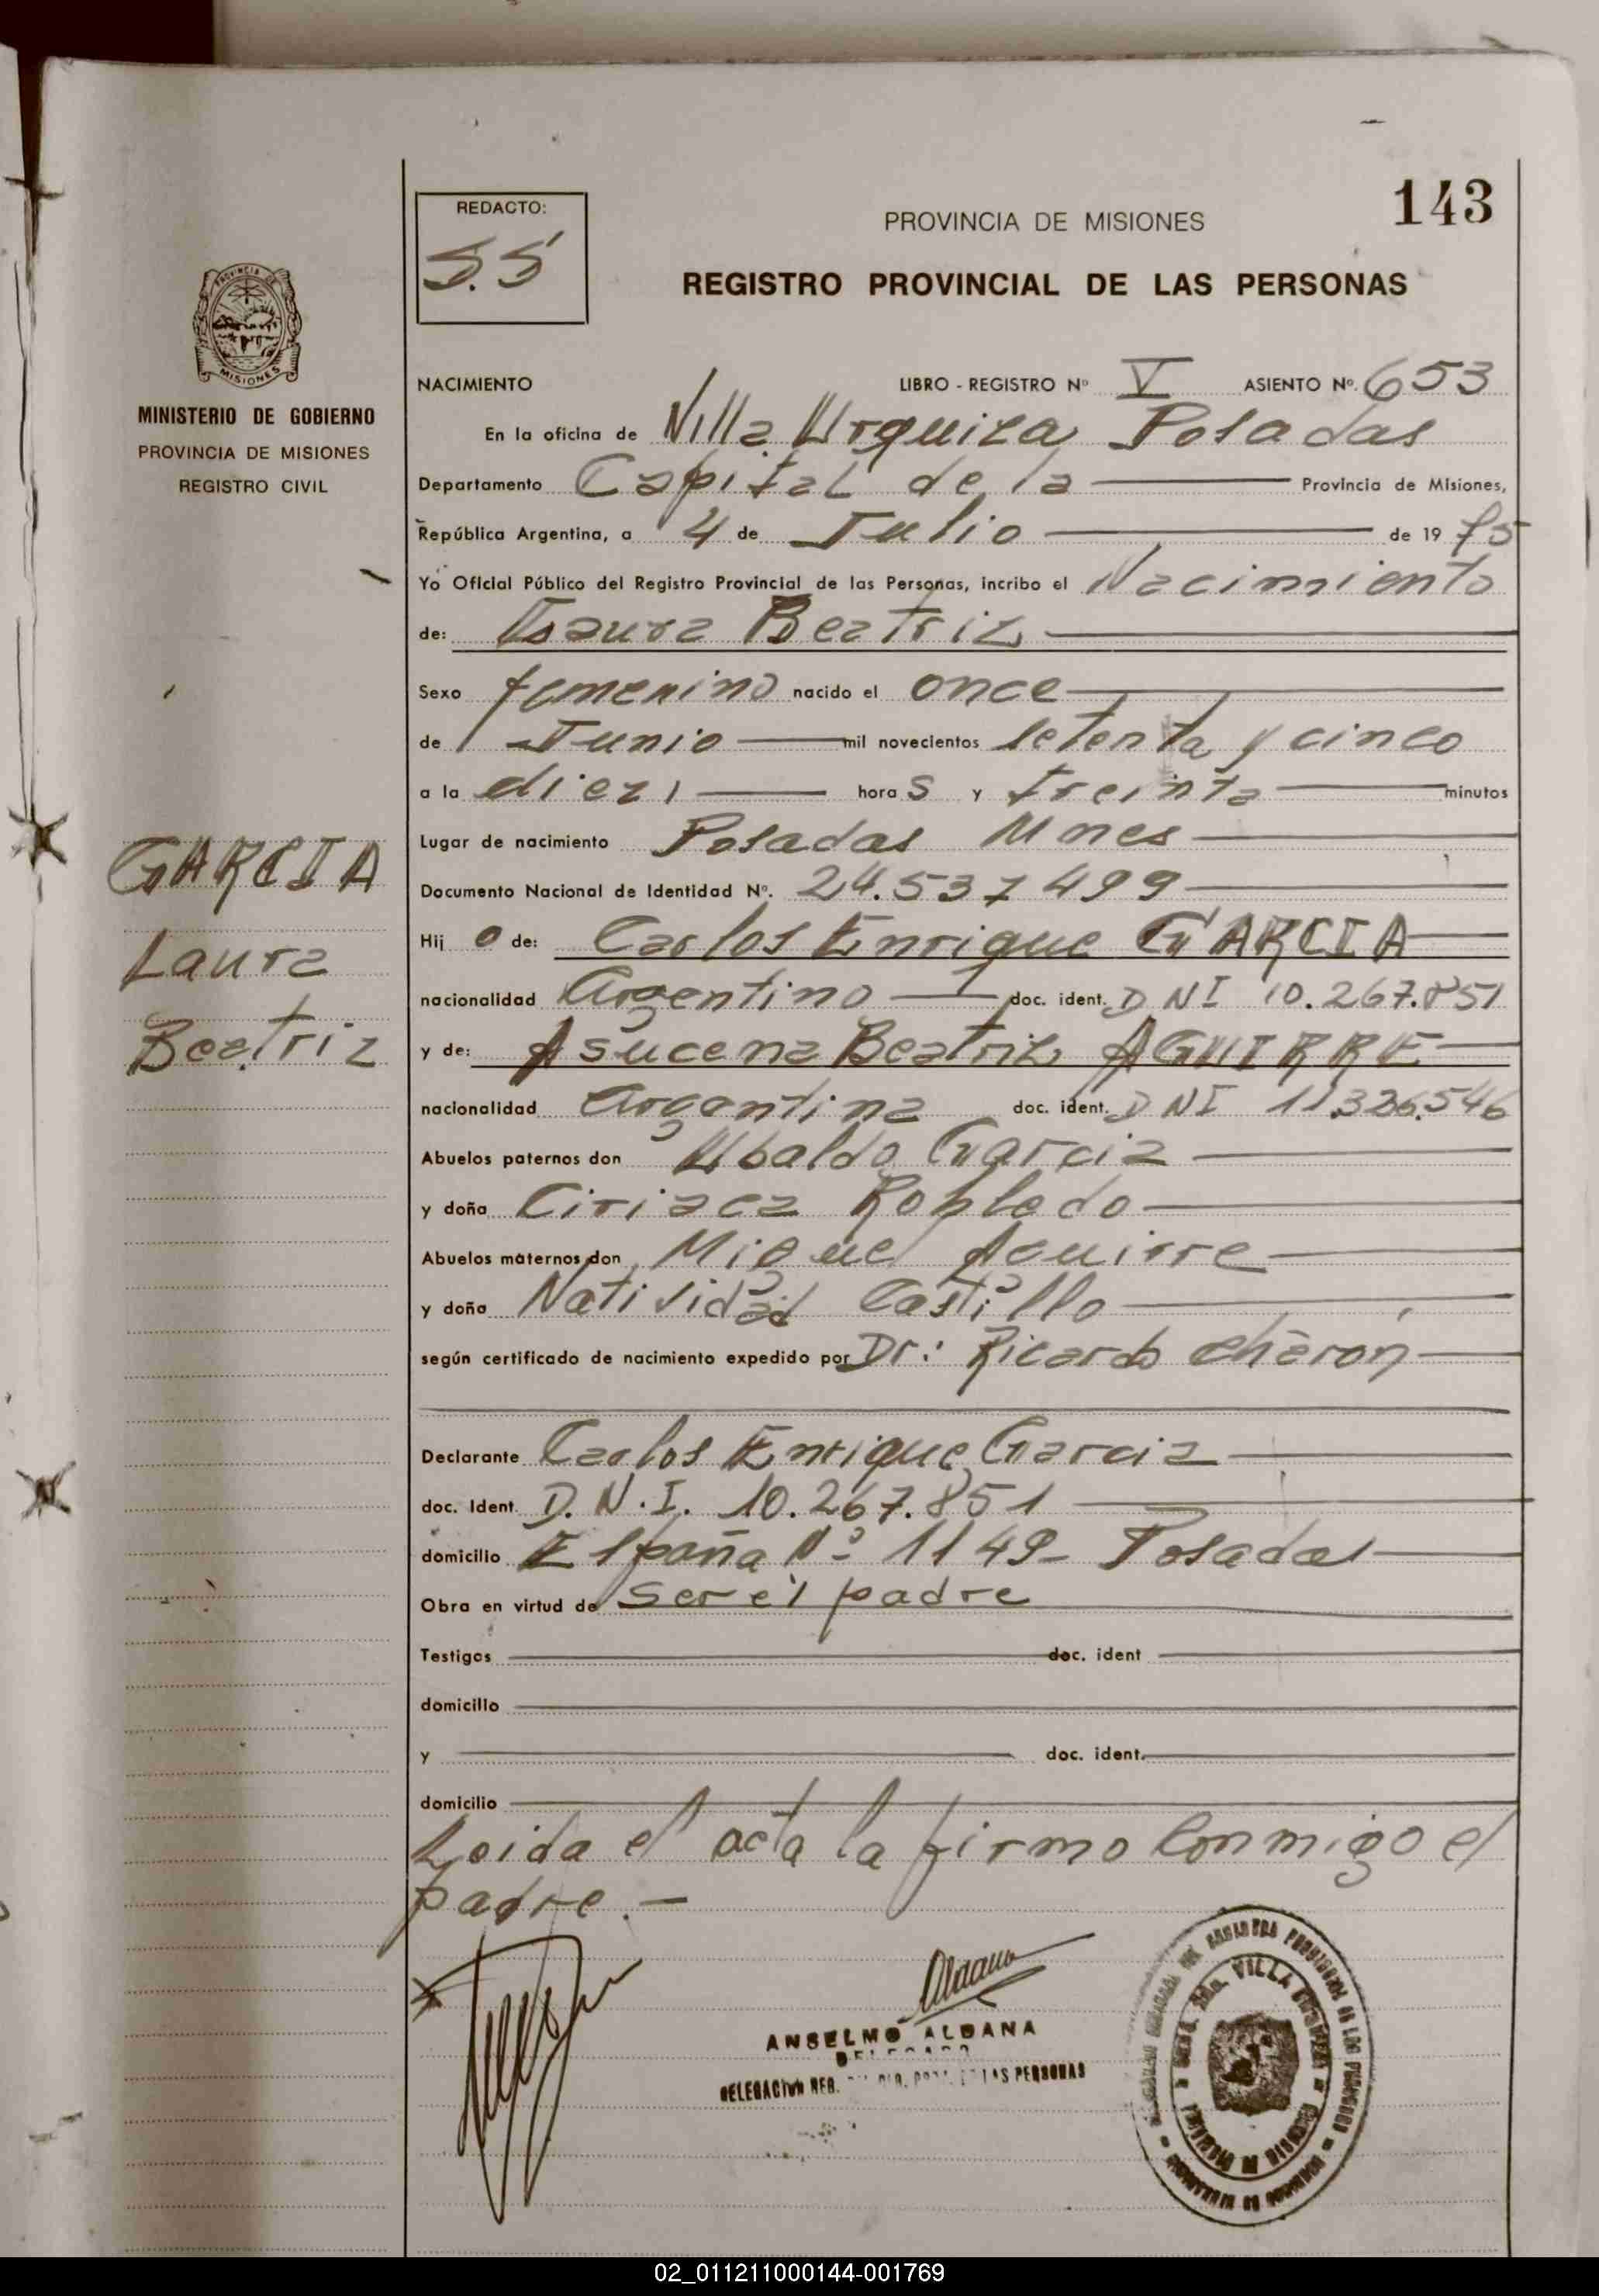 143
REDACTO:
S.S
PROVINCIA DE MISIONES
REGISTRO PROVINCIAL DE LAS PERSONAS
MISIONES
MINISTERIO DE GOBIERNO
PROVINCIA DE MISIONES
REGISTRO CIVIL
NACIMIENTO LIBRO - REGISTRO Nº V ASIENTO Nº. 653
En la oficina de Villa Urquiza Posadas
Departamento Capital de la Provincia de Misiones,
República Argentina, a 4 de Julio de 19 75
Yo Oficial Público del Registro Provincial de las Personas, incribo el Nacimiento
de: Beatriz
Sexo femenino nacido el once
de Junio mil novecientos setenta y cinco
a la diez hora S y treinta minutos
Lugar de nacimiento Posadas Mnes
GARCIA
Laura
Beatriz
Documento Nacional de Identidad Nº. 24.537499
Hij o de: Carlos Enrique GARCIA
nacionalidad Argentino doc. ident. DNI 10.267.851
y de: Asucena Beatriz AGUIRRE
nacionalidad argentina doc. ident. DNI 11.326.546
Abuelos paternos don Ubaldo Garcia
y doña Ciriaca Robledo
Abuelos maternos don Miguel Aguirre
y doña Natividad Castillo
según certificado de nacimiento expedido por Dr: Ricardo Cherón
Declarante Carlos Enrique Garcia
doc. Ident. D.N.I. 10.267.851
domicilio España Nº 1149- Posadas
Obra en virtud de ser el padre
Testigos doc. ident
domicilio
y doc. ident.
domicilio
Leida el acta la firmo conmigo el
padre.-
ANSELMO ALDANA
DELEGADO
DELEGACION REG. LAS PERSONAS
VILLA
02_011211000144-001769